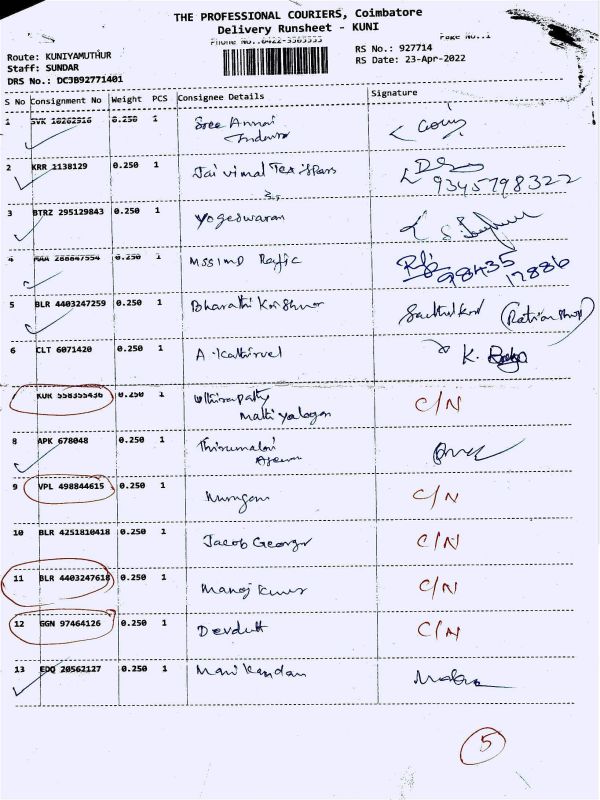 THE PROFESSIONAL COURIERS, Coimbatore
Delivery Runsheet - KUNI
Phone No.:0422-3565555 Page No.:1
Route: KUNIYAMUTHUR RS No.: 927714
Staff: SUNDAR RS Date: 23-Apr-2022
DRS No.: DC3B92771401
S No Consignment No Weight PCS Consignee Details Signature
1 SVK 10262916 0.250 1 Sree Annai
2 KRR 1138129 0.250 1 Jai vimal Tex
9345798322
3 BTRZ 295129843 0.250 1 Yogeswaran
4 MAA 288847554 0.250 1 MSSIMD Rafic 98435
17886
5 BLR 4403247259 0.250 1 Bharathi Krishna (Ration shop)
6 CLT 6071420 0.250 1 A. Kathirvel K.
KUR 558355436 0.250 1 C/N
8 APK 678048 0.250 1 Thirumalai
9 VPL 498844615 0.250 1 Murugan C/N
10 BLR 4251810418 0.250 1 Jacob George C/N
11 BLR 4403247618 0.250 1 Manoj Kumar C/N
12 GGN 97464126 0.250 1 Devdutt C/N
13 EDQ 20562127 0.250 1 Manikandan
5